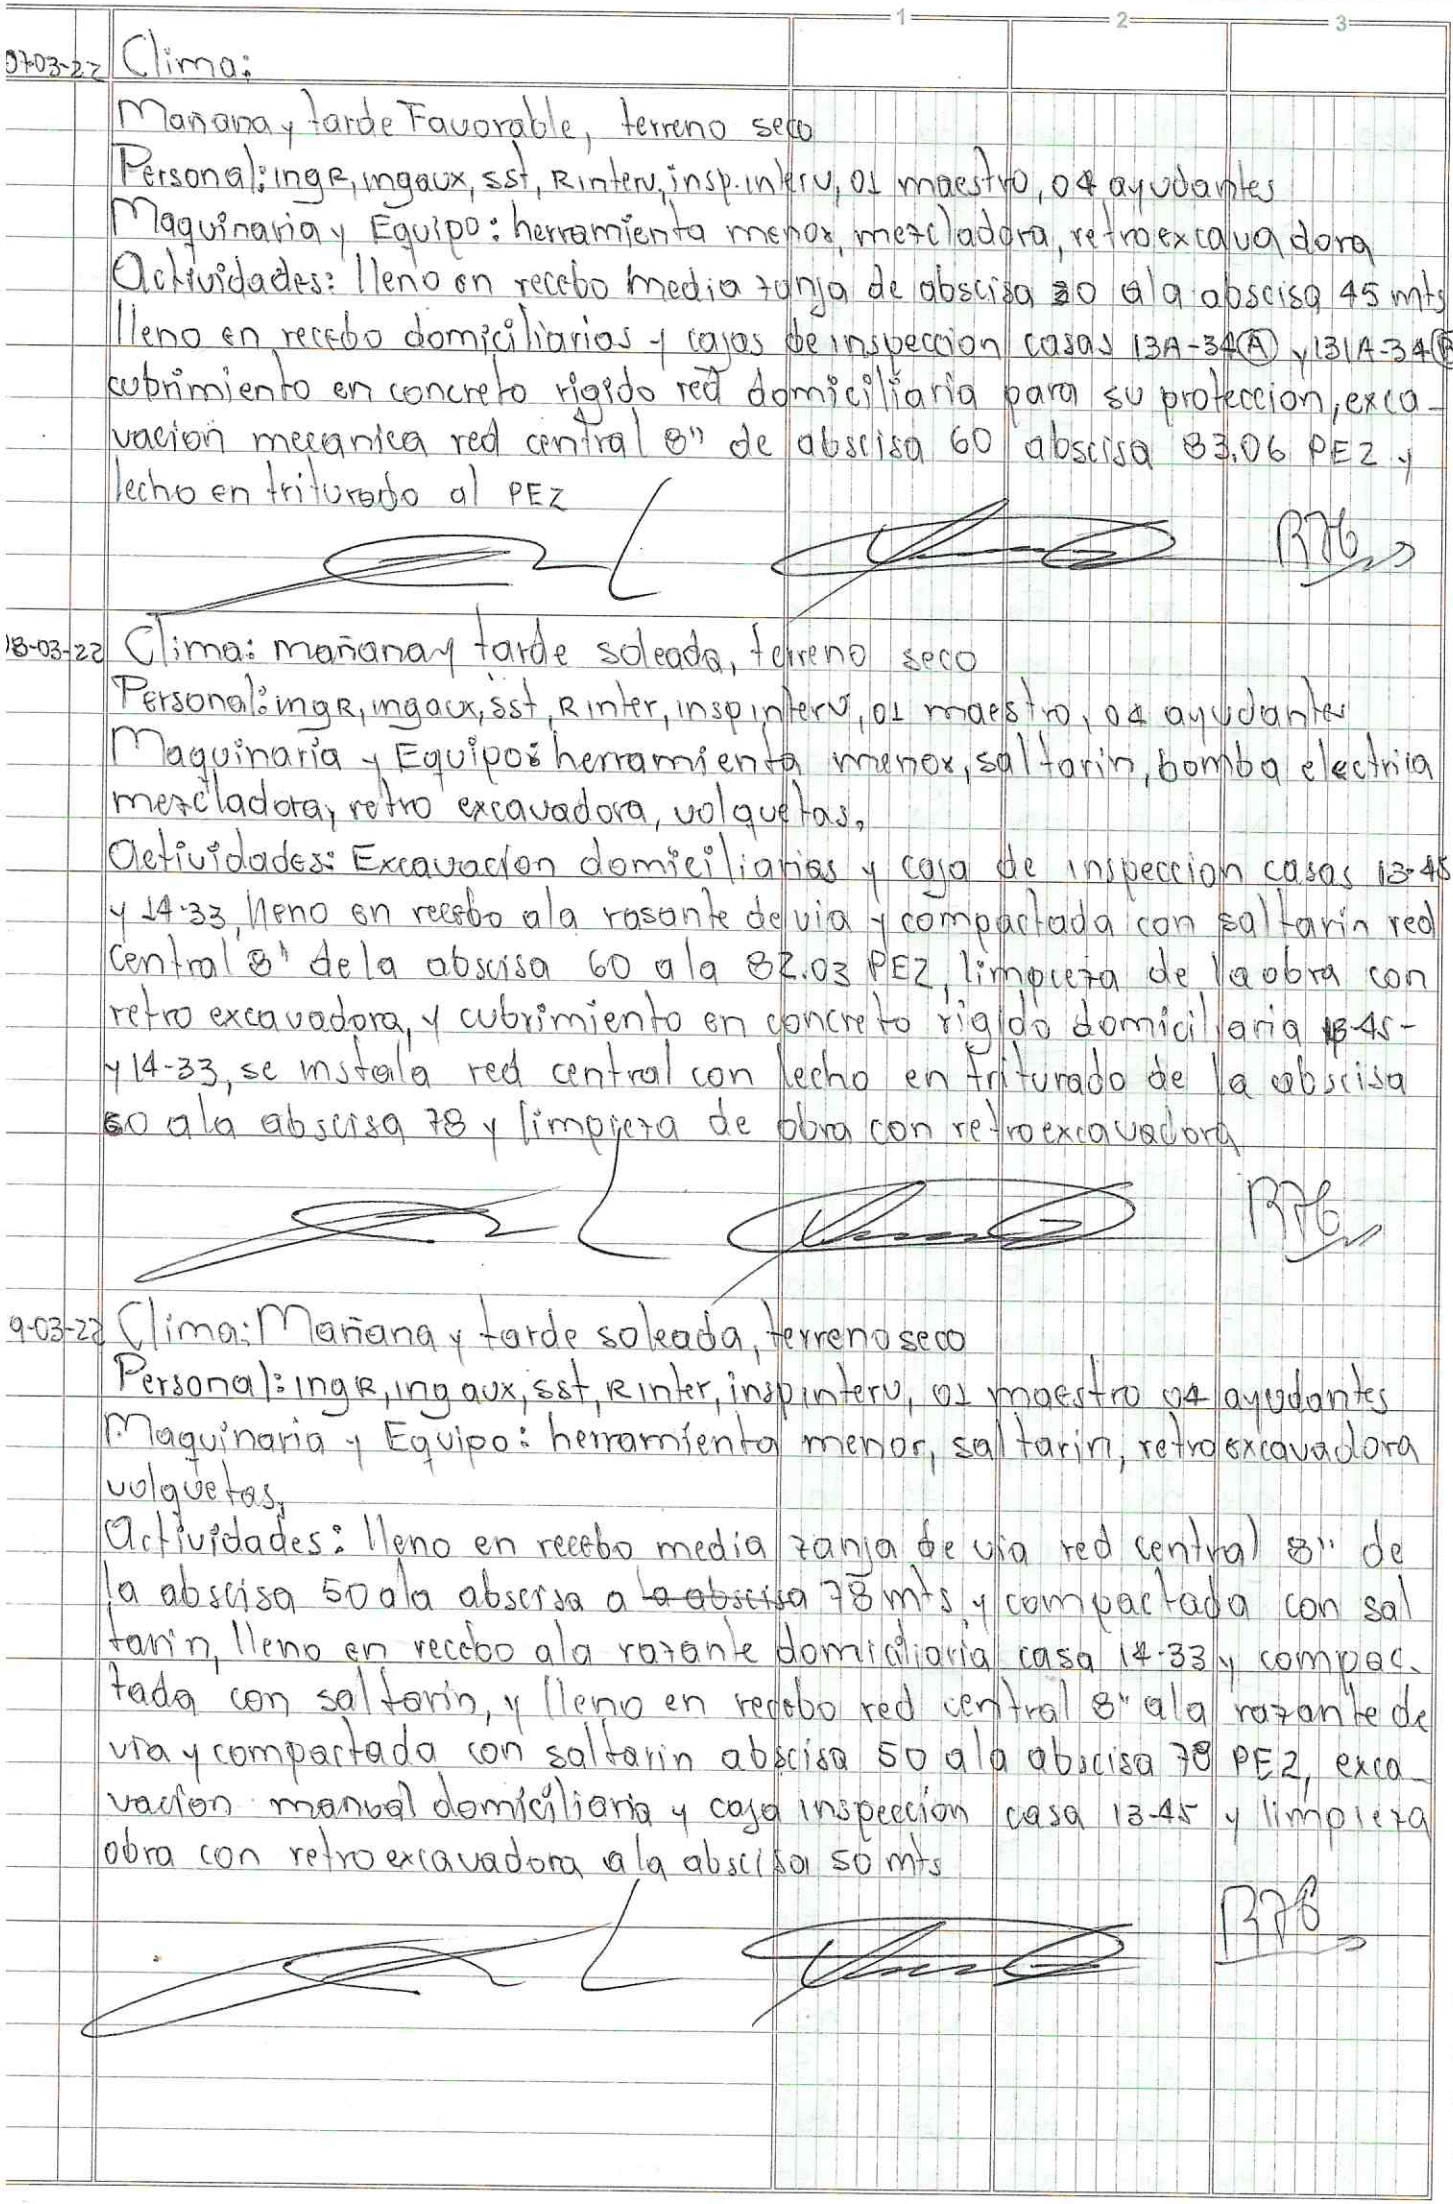 1 2 3
07-03-22 Clima:
Mañana y tarde Favorable, terreno seco
Personal: ingR, ingaux, sst, Rinterv, insp.interv, 01 maestro, 04 ayudantes
Maquinaria y Equipo: herramienta menor, mezcladora, retroexcavadora
Actividades: lleno en recebo media zanja de abscisa 30 ala abscisa 45 mts
lleno en recebo domiciliarias y cajas de inspeccion casas 13A-34 A y 131A-34
cubrimiento en concreto rigido red domiciliaria para su proteccion, exca-
vacion mecanica red central 8" de abscisa 60 abscisa 83.06 PEZ y
lecho en triturado al PEZ
18-03-22 Clima: mañana y tarde soleada, terreno seco
Personal: ingR, ingaux, sst, Rinter, inspinterv, 01 maestro, 04 ayudantes
Maquinaria y Equipo: herramienta menor, saltarin, bomba electrica
mezcladora, retro excavadora, volquetas.
Actividades: Excavacion domiciliarias y caja de inspeccion casas 13-45
y 14-33, lleno en recebo ala rasante de via y compactada con saltarin red
central 8" de la abscisa 60 ala 82.03 PEZ, limpieza de la obra con
retro excavadora, y cubrimiento en concreto rigido domiciliaria 13-45-
y 14-33, se instala red central con lecho en triturado de la abscisa
50 ala abscisa 78 y limpieza de obra con retroexcavadora
9-03-22 Clima: Mañana y tarde soleada, terreno seco
Personal: ingR, ing aux, sst, Rinter, inspinterv, 01 maestro 04 ayudantes
Maquinaria y Equipo: herramienta menor, saltarin, retroexcavadora
volquetas,
Actividades: lleno en recebo media zanja de via red central 8" de
la abscisa 50 ala abscisa a la abscisa 78 mts y compactada con sal
tarin, lleno en recebo ala razante domiciliaria casa 14-33 y compac-
tada con saltarin, y lleno en recebo red central 8" ala razante de
via y compactada con saltarin abscisa 50 ala abscisa 78 PEZ, exca-
vacion manual domiciliaria y caja inspeccion casa 13-45 y limpieza
obra con retroexcavadora ala abscisa 50 mts